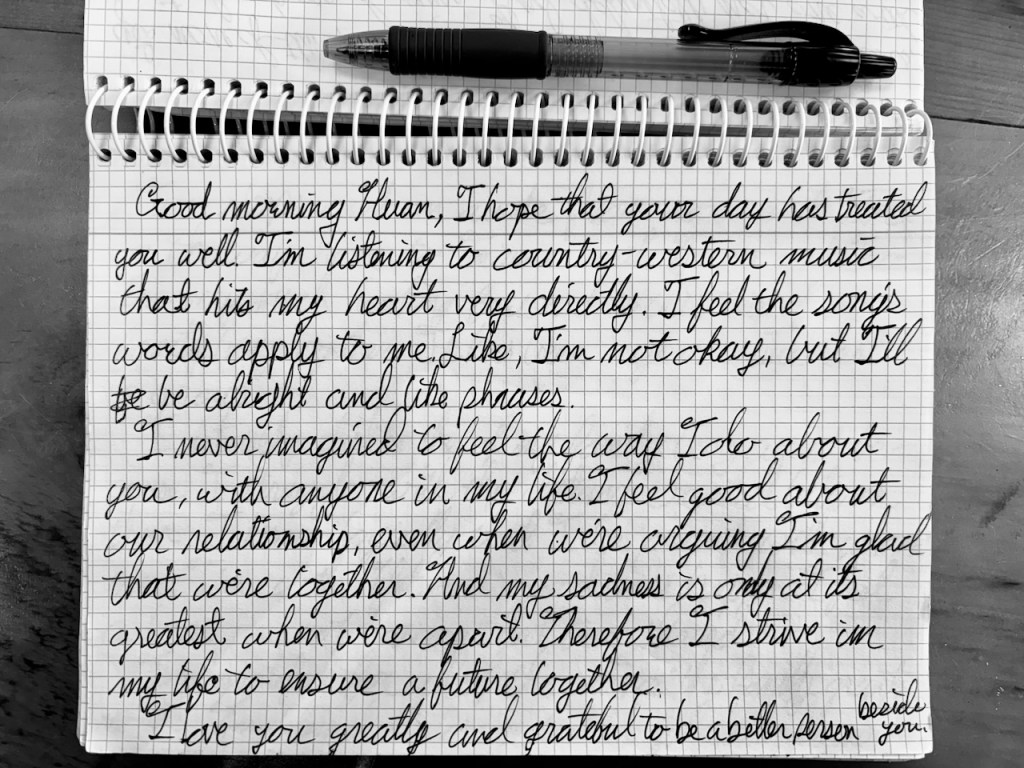 Good morning Huan, I hope that your day has treated
you well. I'm listening to country-western music
that hits my heart very directly. I feel the song's
words apply to me. Like, I'm not okay, but I'll
be be alright and like phrases.
I never imagined to feel the way I do about
you, with anyone in my life. I feel good about
our relationship, even when we're arguing I'm glad
that we're together. And my sadness is only at its
greatest when we're apart. Therefore I strive in
my life to ensure a future together.
I love you greatly and grateful to be a better person beside you.